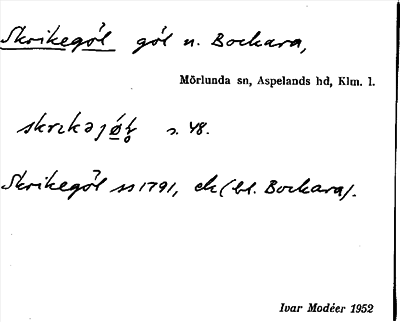 Skrikegöl göl n. Bockara,
Mörlunda sn, Aspelands hd, Klm. l.
s. 48.
Skrikegöl ss 1791, ek (bl. Bockara).
Ivar Modéer 1952